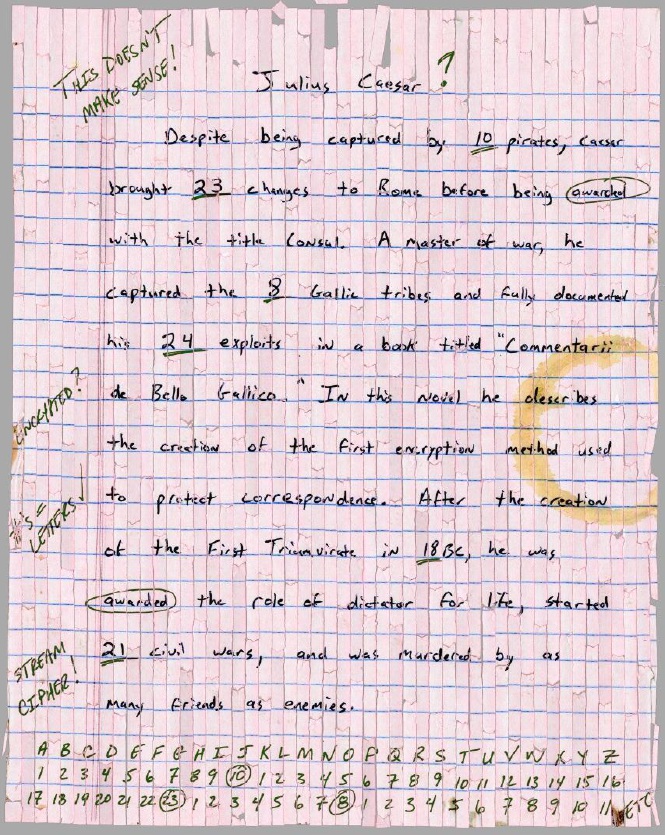 THIS DOESN'T
MAKE SENSE!
Julius Caesar ?
Despite being captured by 10 pirates, Caesar
brought 23 changes to Rome before being awarded
with the title Consul. A master of war, he
captured the 8 Gallic tribes and fully documented
his 24 exploits in a book titled "Commentarii
de Bello Gallico." In this novel he describes
ENCRYPTED?
the creation of the first encryption method used
to protect correspondence. After the creation
#'s =
LETTERS ✓
of the First Triumvirate in 18 BC, he was
awarded the role of dictator for life, started
21 civil wars, and was murdered by as
STREAM
CIPHER!
many friends as enemies.
A B C D E F G H I J K L M N O P Q R S T U V W X Y Z
1 2 3 4 5 6 7 8 9 10 1 2 3 4 5 6 7 8 9 10 11 12 13 14 15 16
17 18 19 20 21 22 23 1 2 3 4 5 6 7 8 1 2 3 4 5 6 7 8 9 10 11 ETC